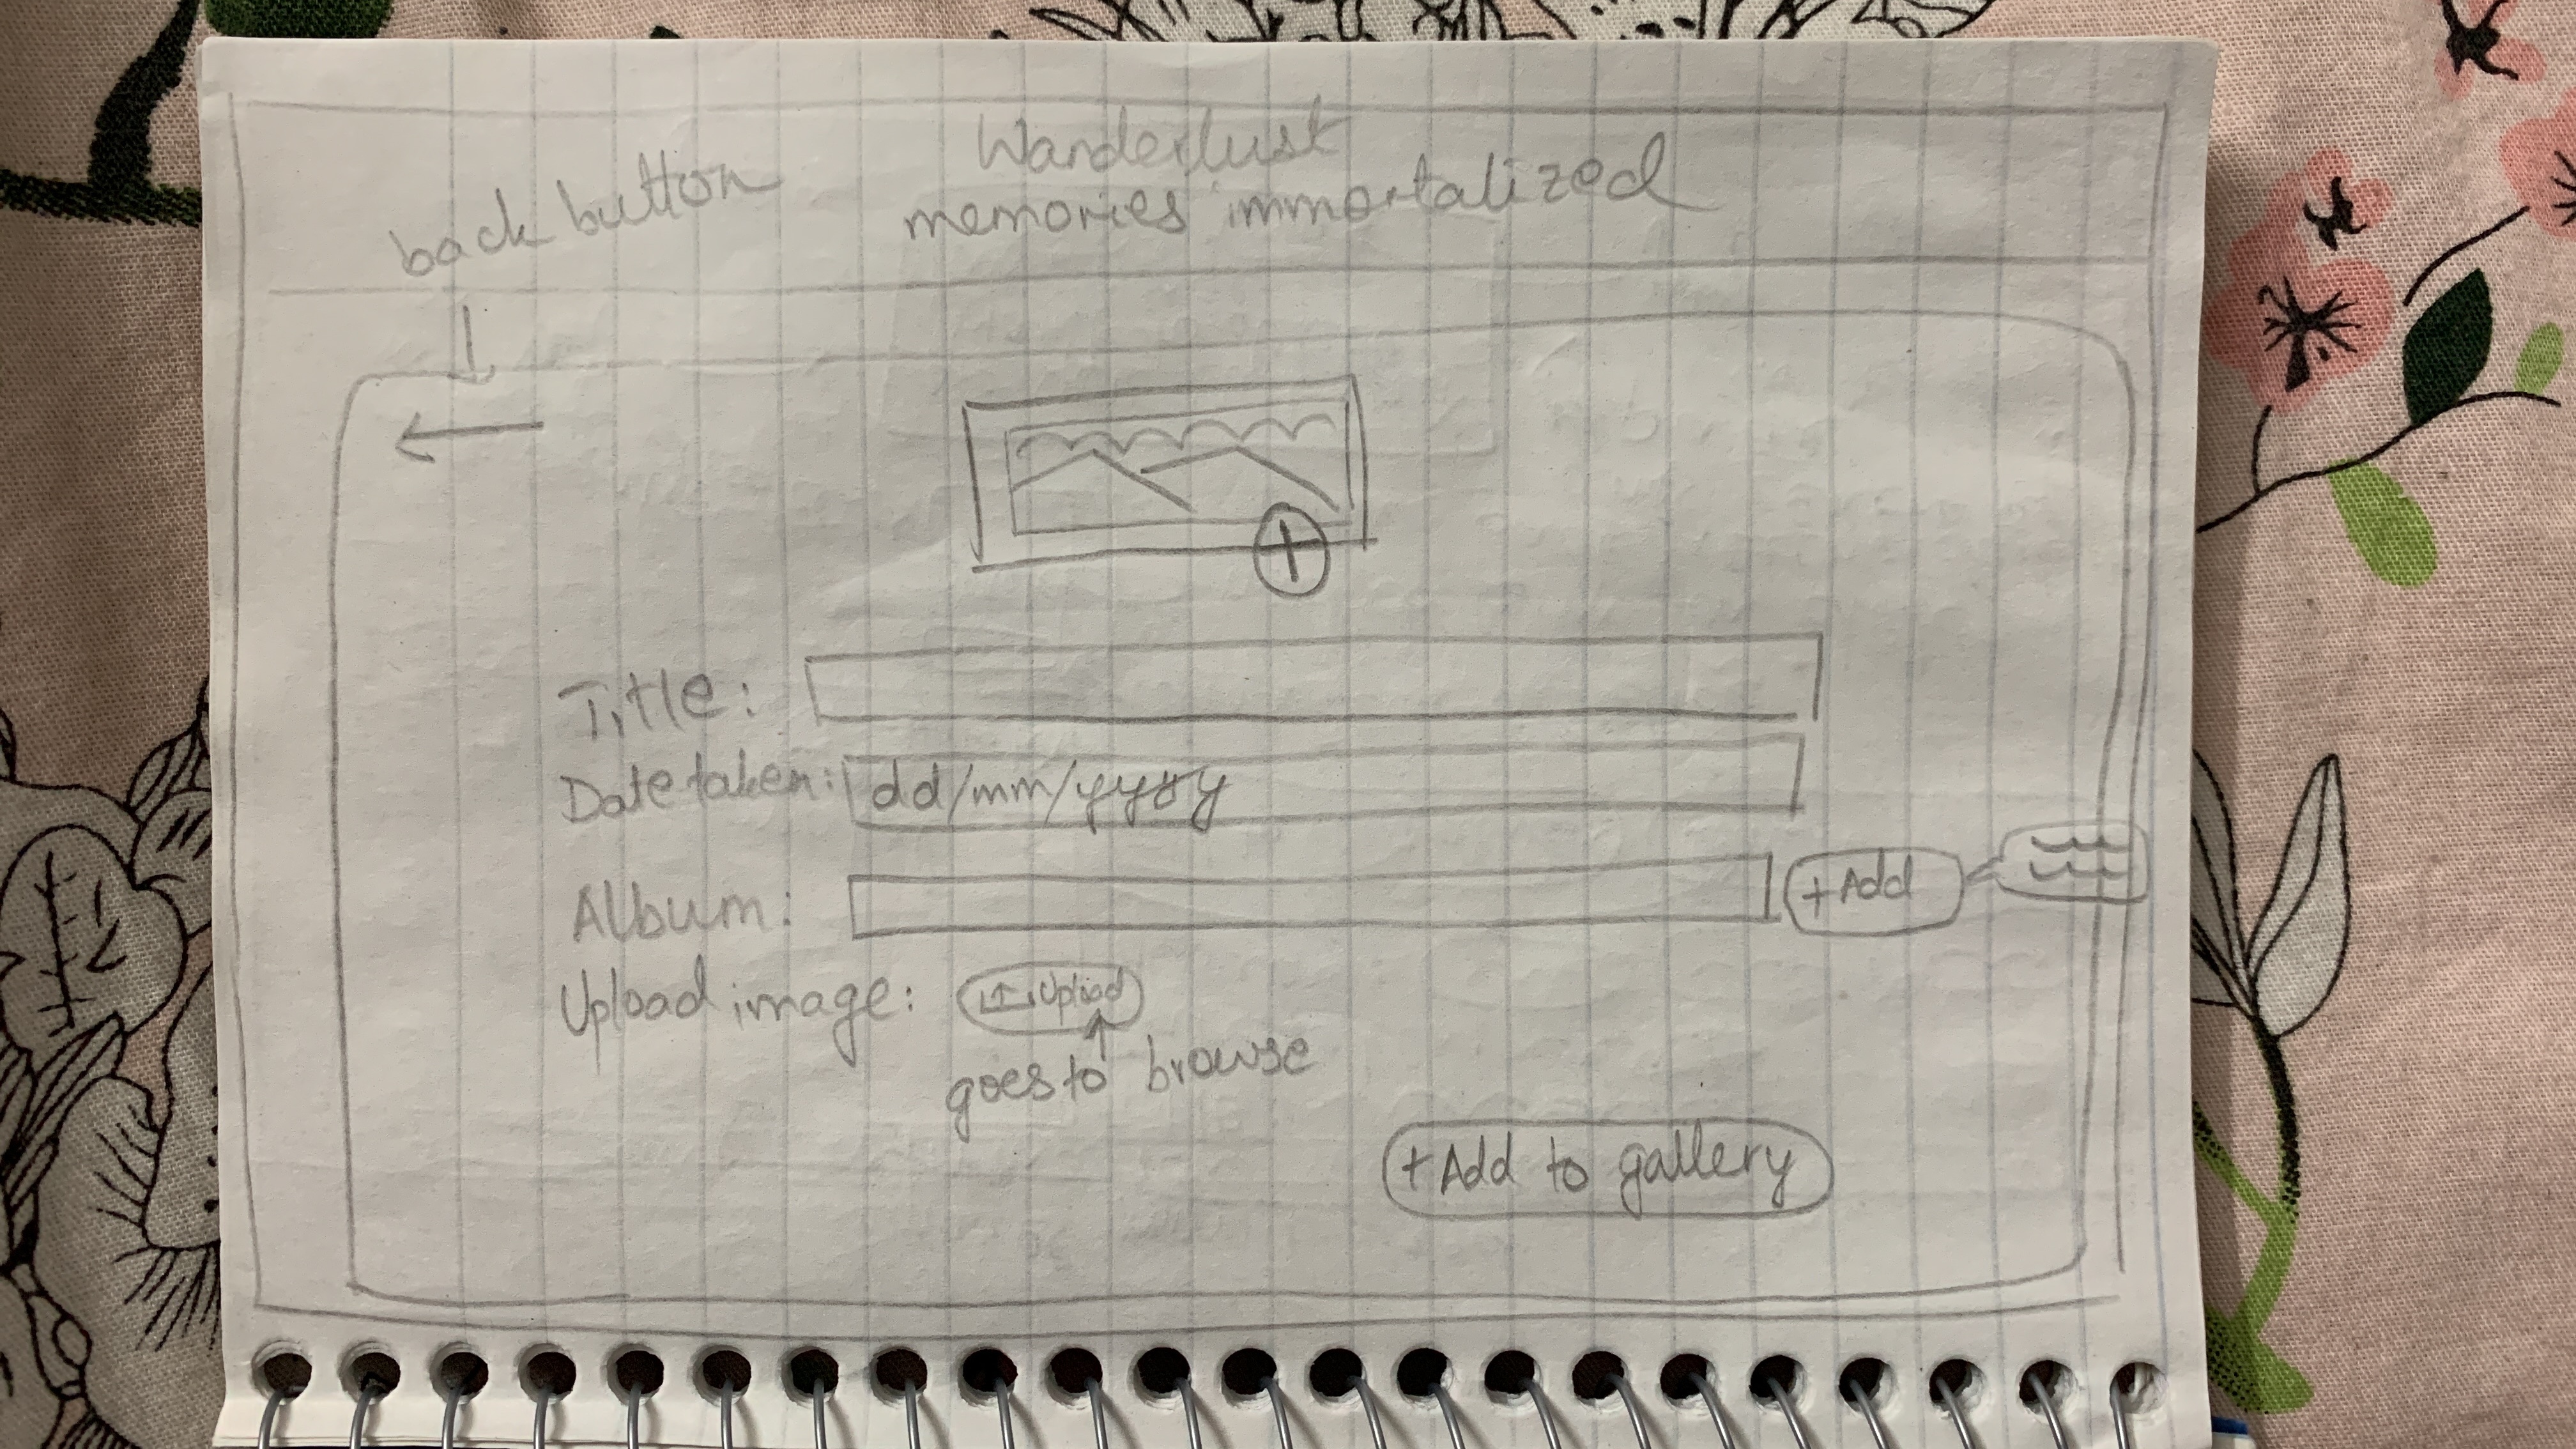 Wanderlust
memories immortalized
back button
Title:
Date taken: dd/mm/yyyy
Album: + Add
Upload image: Upload
goes to browse
+ Add to gallery